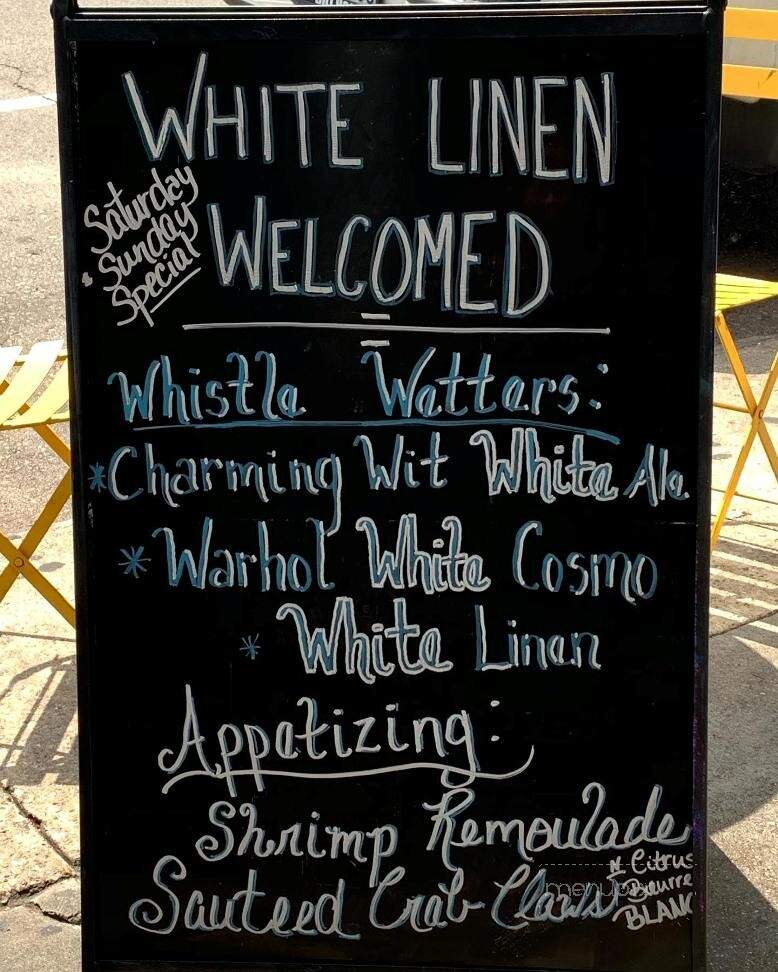 WHITE LINEN
Saturday
Sunday
Special
WELCOMED
Whistle Wetters:
*Charming Wit White Ale
*Warhol White Cosmo
*White Linen
Appetizing:
Shrimp Remoulade
Sauteed Crab Claws
N Citrus
Beurre
BLANK